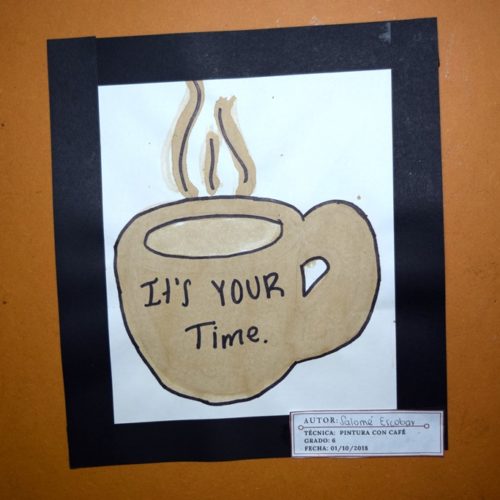 It's YOUR
Time.
AUTOR: Salomé Escobar
TÉCNICA: PINTURA CON CAFÉ
GRADO: 6
FECHA: 01/10/2018